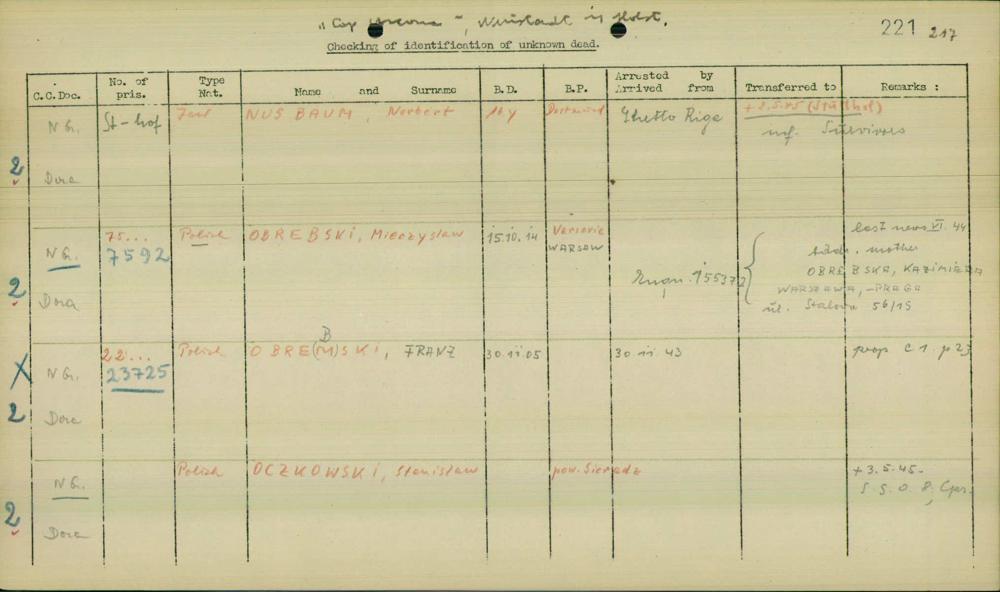 "Cap Arcona", Neustadt in Holst.
221 217
Checking of identification of unknown dead.
C.C.Doc. No. of pris. Type Nat. Name and Surname B.D. B.P. Arrested by Arrived from Transferred to Remarks :
2 N G. Dora St-hof NUSBAUM, Norbert Dortmund Ghetto Riga + 3.5.45 (Stutthof)
inf.
2 N G. Dora 75... 7592 Polish OBREBSKI, Mieczyslaw 15.10.14 Varsovie WARSAW 155372 last news VI. 44
mother
OBREBSKA, KAZIMIERA
WARSZAWA, -PRAGA
ul. Stalowa 56/15
X 2 N G. Dora 22... 23725 Polish OBRE(M)SKI, FRANZ 30.11.05 30.11.43 C 1. p 23
B
2 N G. Dora Polish OCZKOWSKI, Stanislaw pow. Sieradz + 3.5.45.